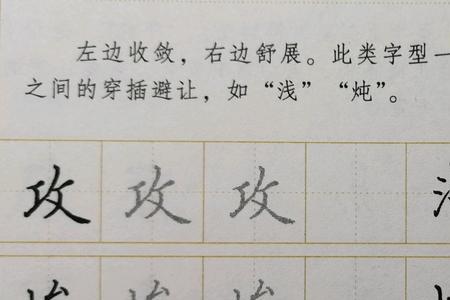 左边收敛，右边舒展。此类字型一
之间的穿插避让，如“浅”“炖”。
攻 攻 攻